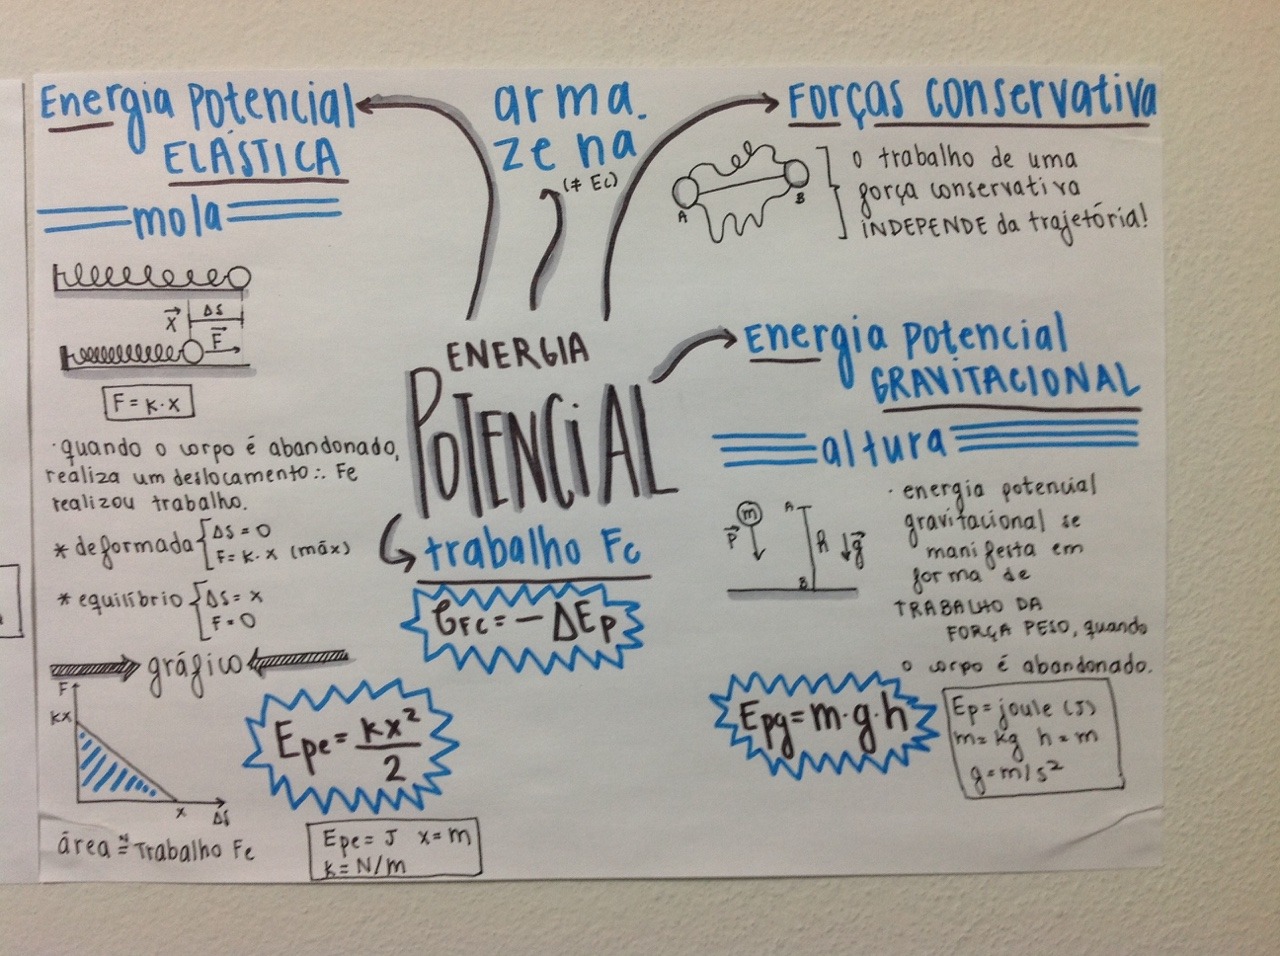 Energia Potencial
ELÁSTICA
mola
X⃗ ΔS
F⃗
F = K·X
·quando o corpo é abandonado,
realiza um deslocamento ∴ Fe
realizou trabalho.
* deformada { ΔS = 0
F = K·X (máx)
* equilíbrio { ΔS = X
F = 0
gráfico
F
KX
X ΔS
área ≝ Trabalho Fe
Epe = kx²/2
Epe = J x = m
K = N/m
arma.
zena
(≠ Ec)
ENERGIA
POTENCIAL
trabalho Fc
τFC = - ΔEp
Forças conservativa
A B
o trabalho de uma
força conservativa
INDEPENDE da trajetória!
Energia Potencial
GRAVITACIONAL
altura
m A
P⃗ h g⃗
B
· energia potencial
gravitacional se
manifesta em
forma de
TRABALHO DA
FORÇA PESO, quando
o corpo é abandonado.
Epg = m·g·h
Ep = joule (J)
m = kg h = m
g = m/s²